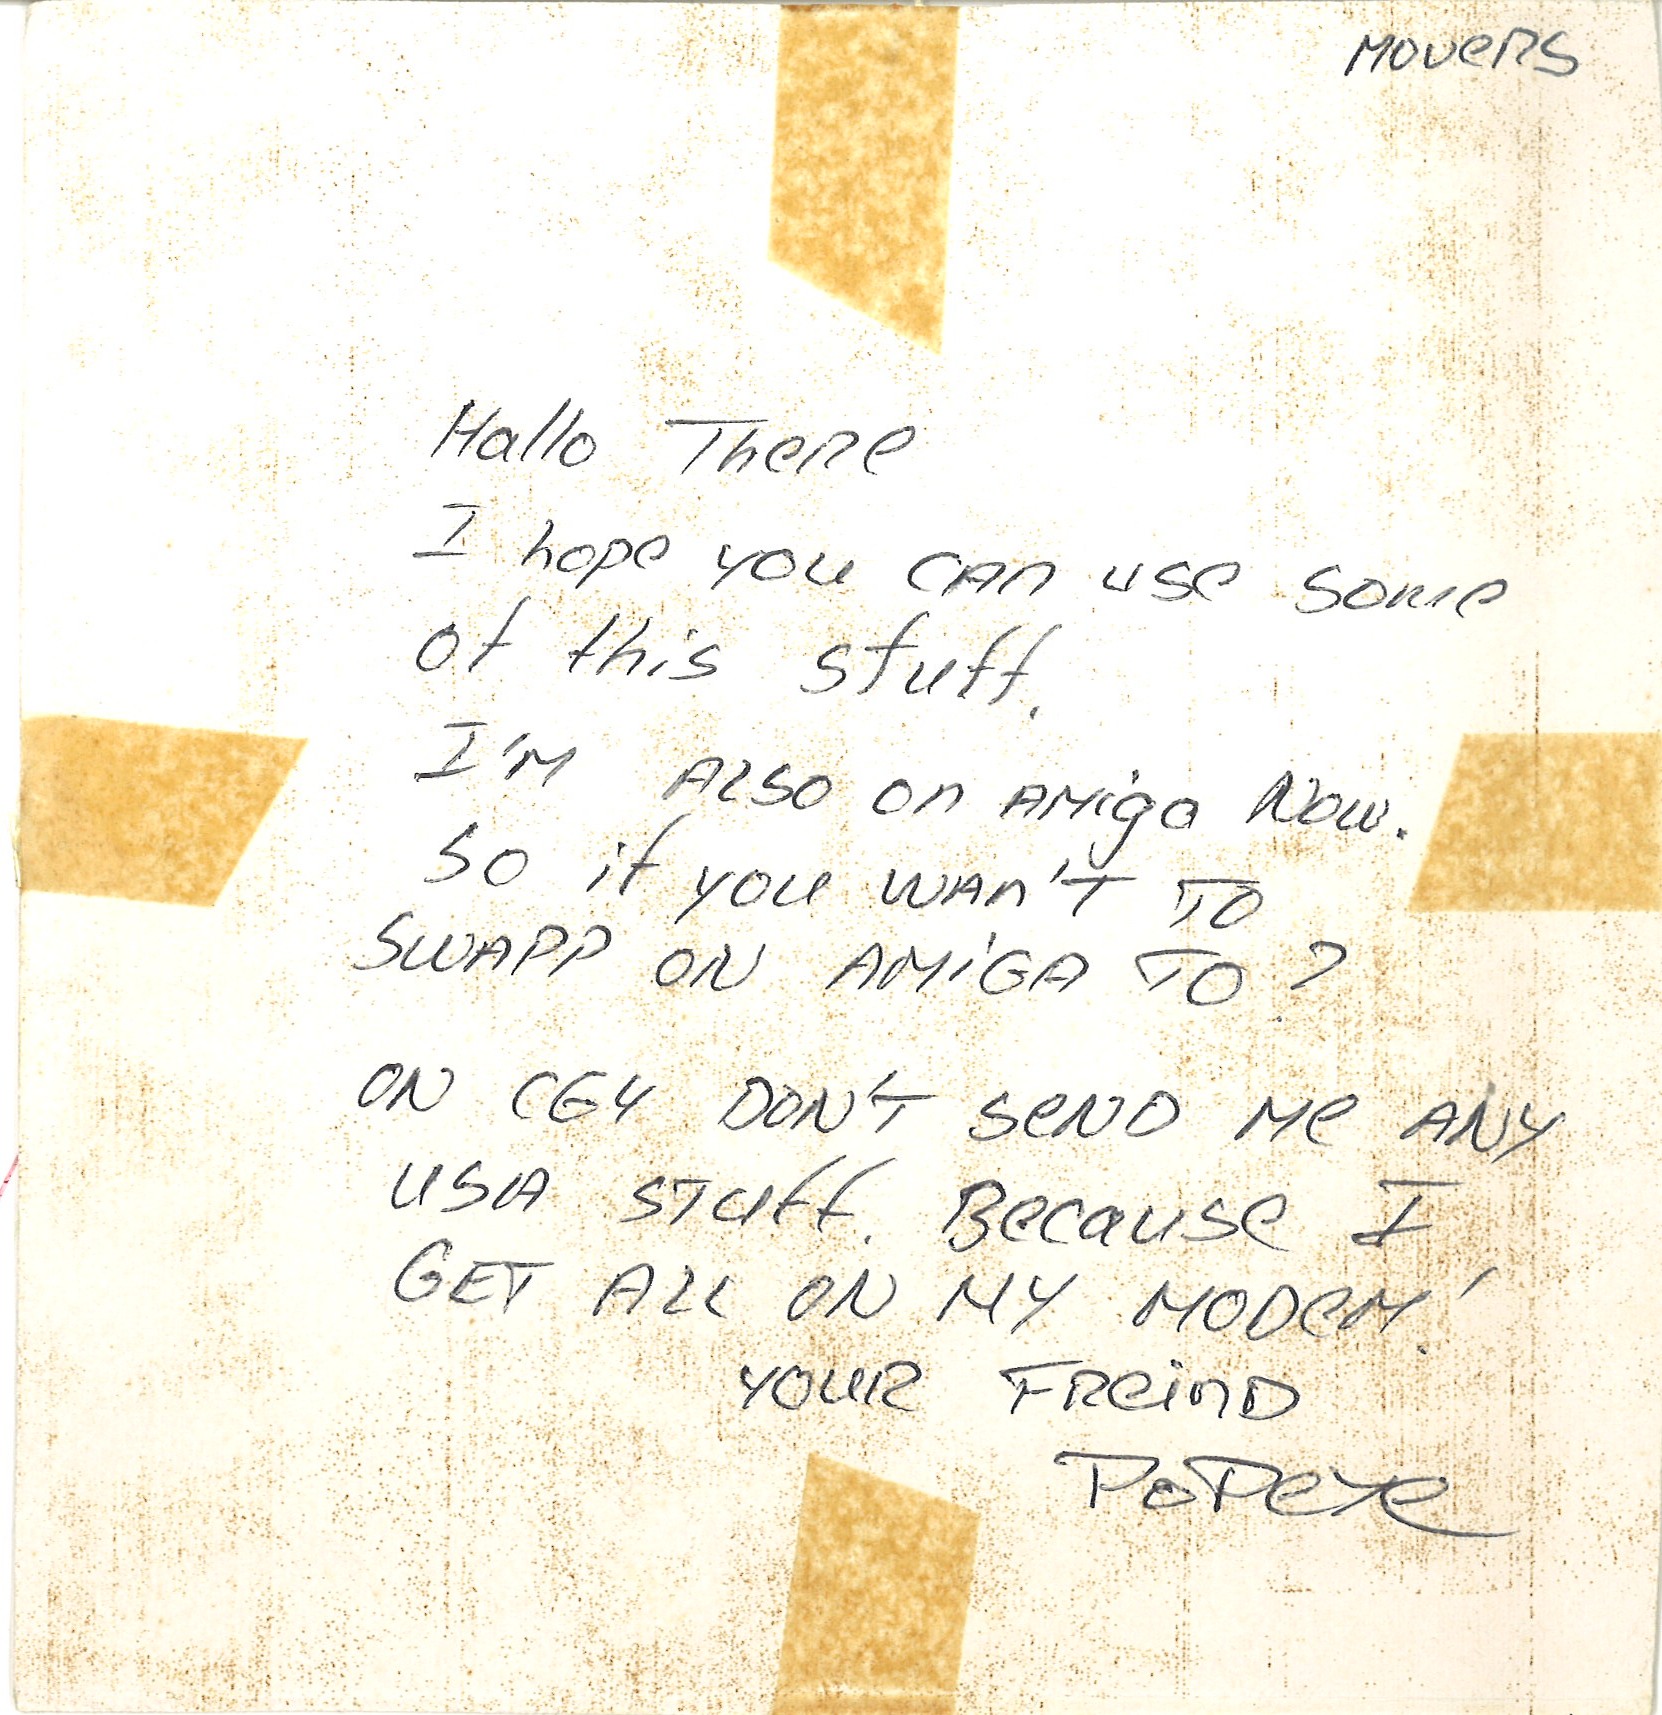 MOVERS
Hallo There
I hope you can use some
of this stuff.
I'M ALSO on AMiga Now.
So if you wan't TO
SWAPP ON AMiGA TO?
ON C64 DON'T SeND Me ANY
USA STUff. Because I
GET ALL ON MY MODeM!
YOUR FReinD
PoPeye